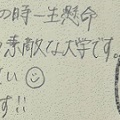 の時一生懸命
素敵な大学です。
い☺
す!!